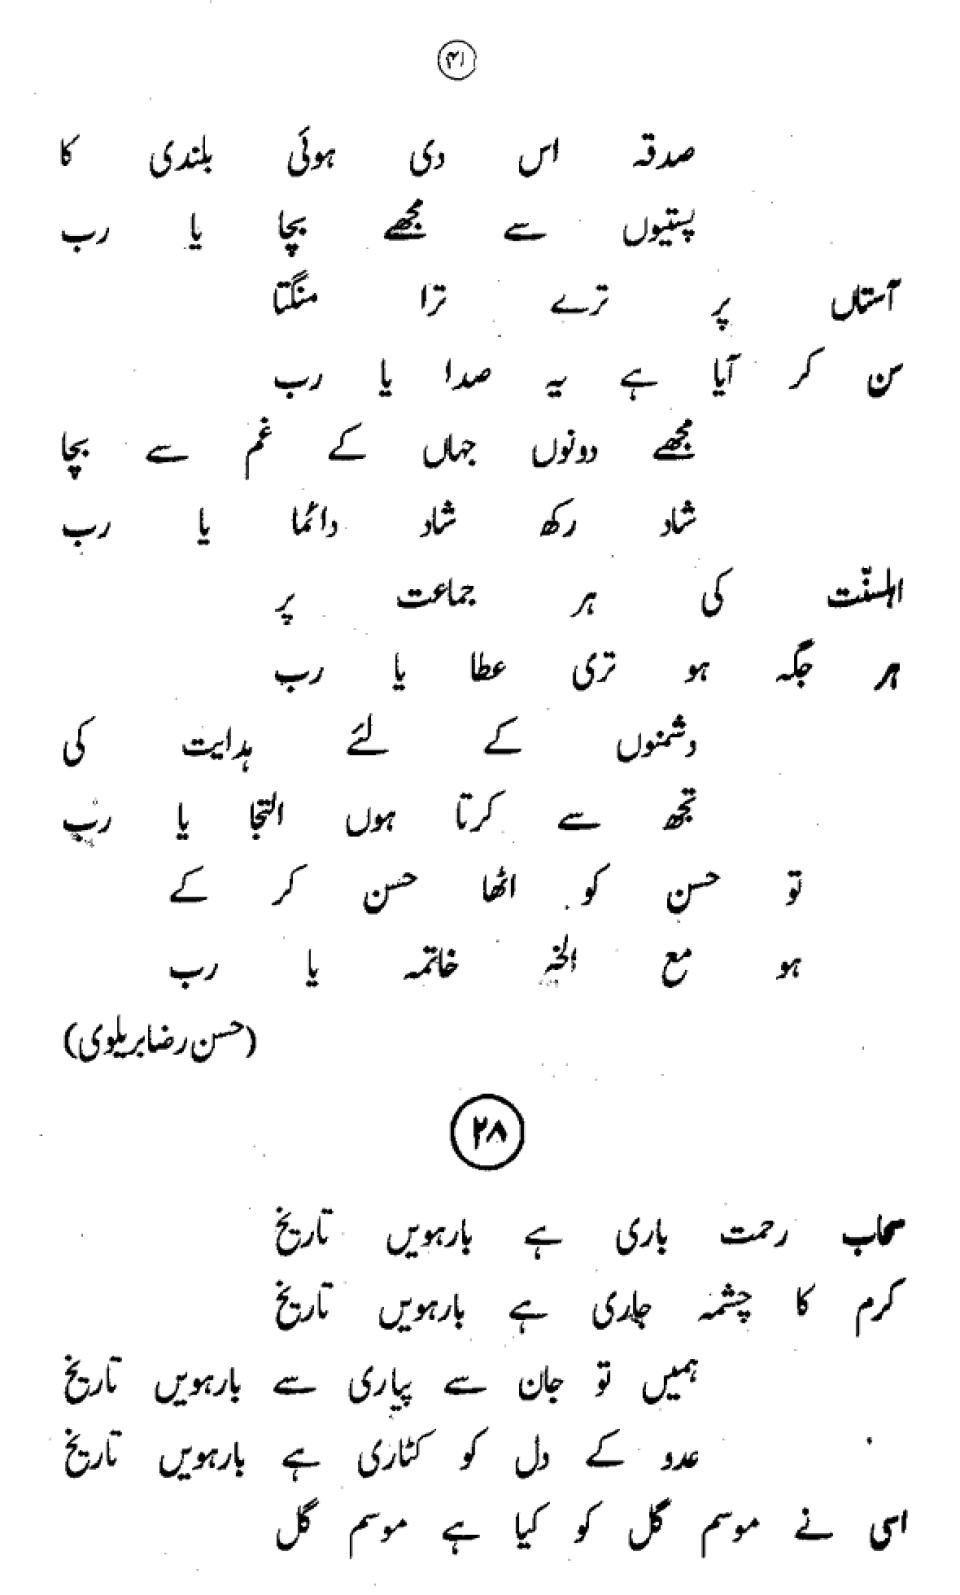 ۴۱
صدقہ اس دی ہوئی بلندی کا
پستیوں سے مجھے بچا یا رب
آستاں پر ترے ترا منگتا
سن کر آیا ہے یہ صدا یا رب
مجھے دونوں جہاں کے غم سے بچا
شاد رکھ شاد دائما یا رب
اہلسنّت کی ہر جماعت پر
ہر جگہ ہو تری عطا یا رب
دشمنوں کے لئے ہدایت کی
تجھ سے کرتا ہوں التجا یا رب
تو حسن کو اٹھا حسن کر کے
ہو مع الخیر خاتمہ یا رب
(حسن رضا بریلوی)
۲۸
سحاب رحمت باری ہے بارہویں تاریخ
کرم کا چشمہ جاری ہے بارہویں تاریخ
ہمیں تو جان سے پیاری سے بارہویں تاریخ
عدو کے دل کو کٹاری ہے بارہویں تاریخ
اسی نے موسم گل کو کیا ہے موسم گل